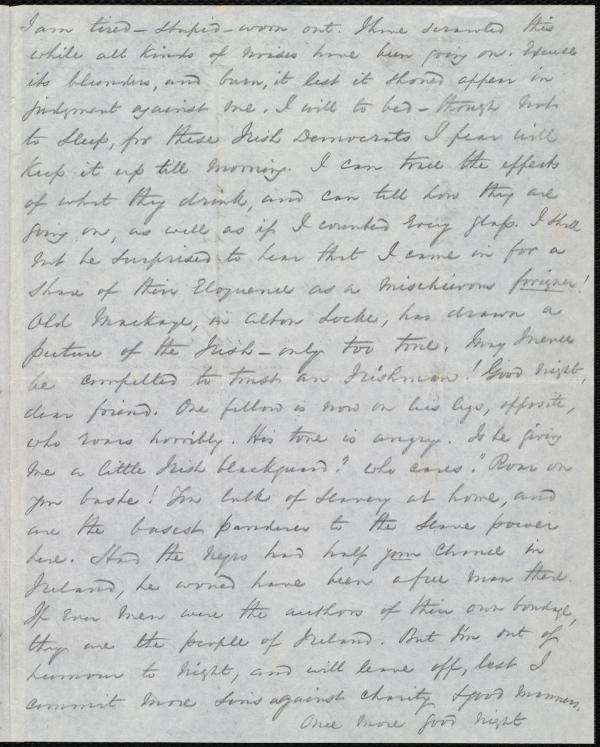 I am tired – stupid – worn out. I have scrawled this
while all kinds of noises have been going on. Excuse
its blunders, and burn, it lest it should appear in
judgment against me. I will to bed – though not
to sleep, for these Irish Democrats I fear will
keep it up till morning. I can trace the effects
of what they drink, and can tell how they are
going on, as well as if I counted every glass. I shall
not be surprised to hear that I came in for a
share of their Eloquence as a mischievous foreigner!
Old Mackaye, in Alton Locke, has drawn a
picture of the Irish – only too true. May I never
be compelled to trust an Irishman! Good night,
dear friend. One fellow is now on his legs, opposite,
who roars horribly. His tone is angry. Is he giving
me a little Irish blackguard? Who cares? Roar on
you You talk of slavery at home, and
are the basest panderers to the Slave power
here. Had the Negro had half your chance in
Ireland, he would have been a free man there.
If ever men were the authors of their own bondage,
they are the people of Ireland. But I'm out of
humour to night, and will leave off, lest I
commit more sins against charity & good manners.
Once more good night